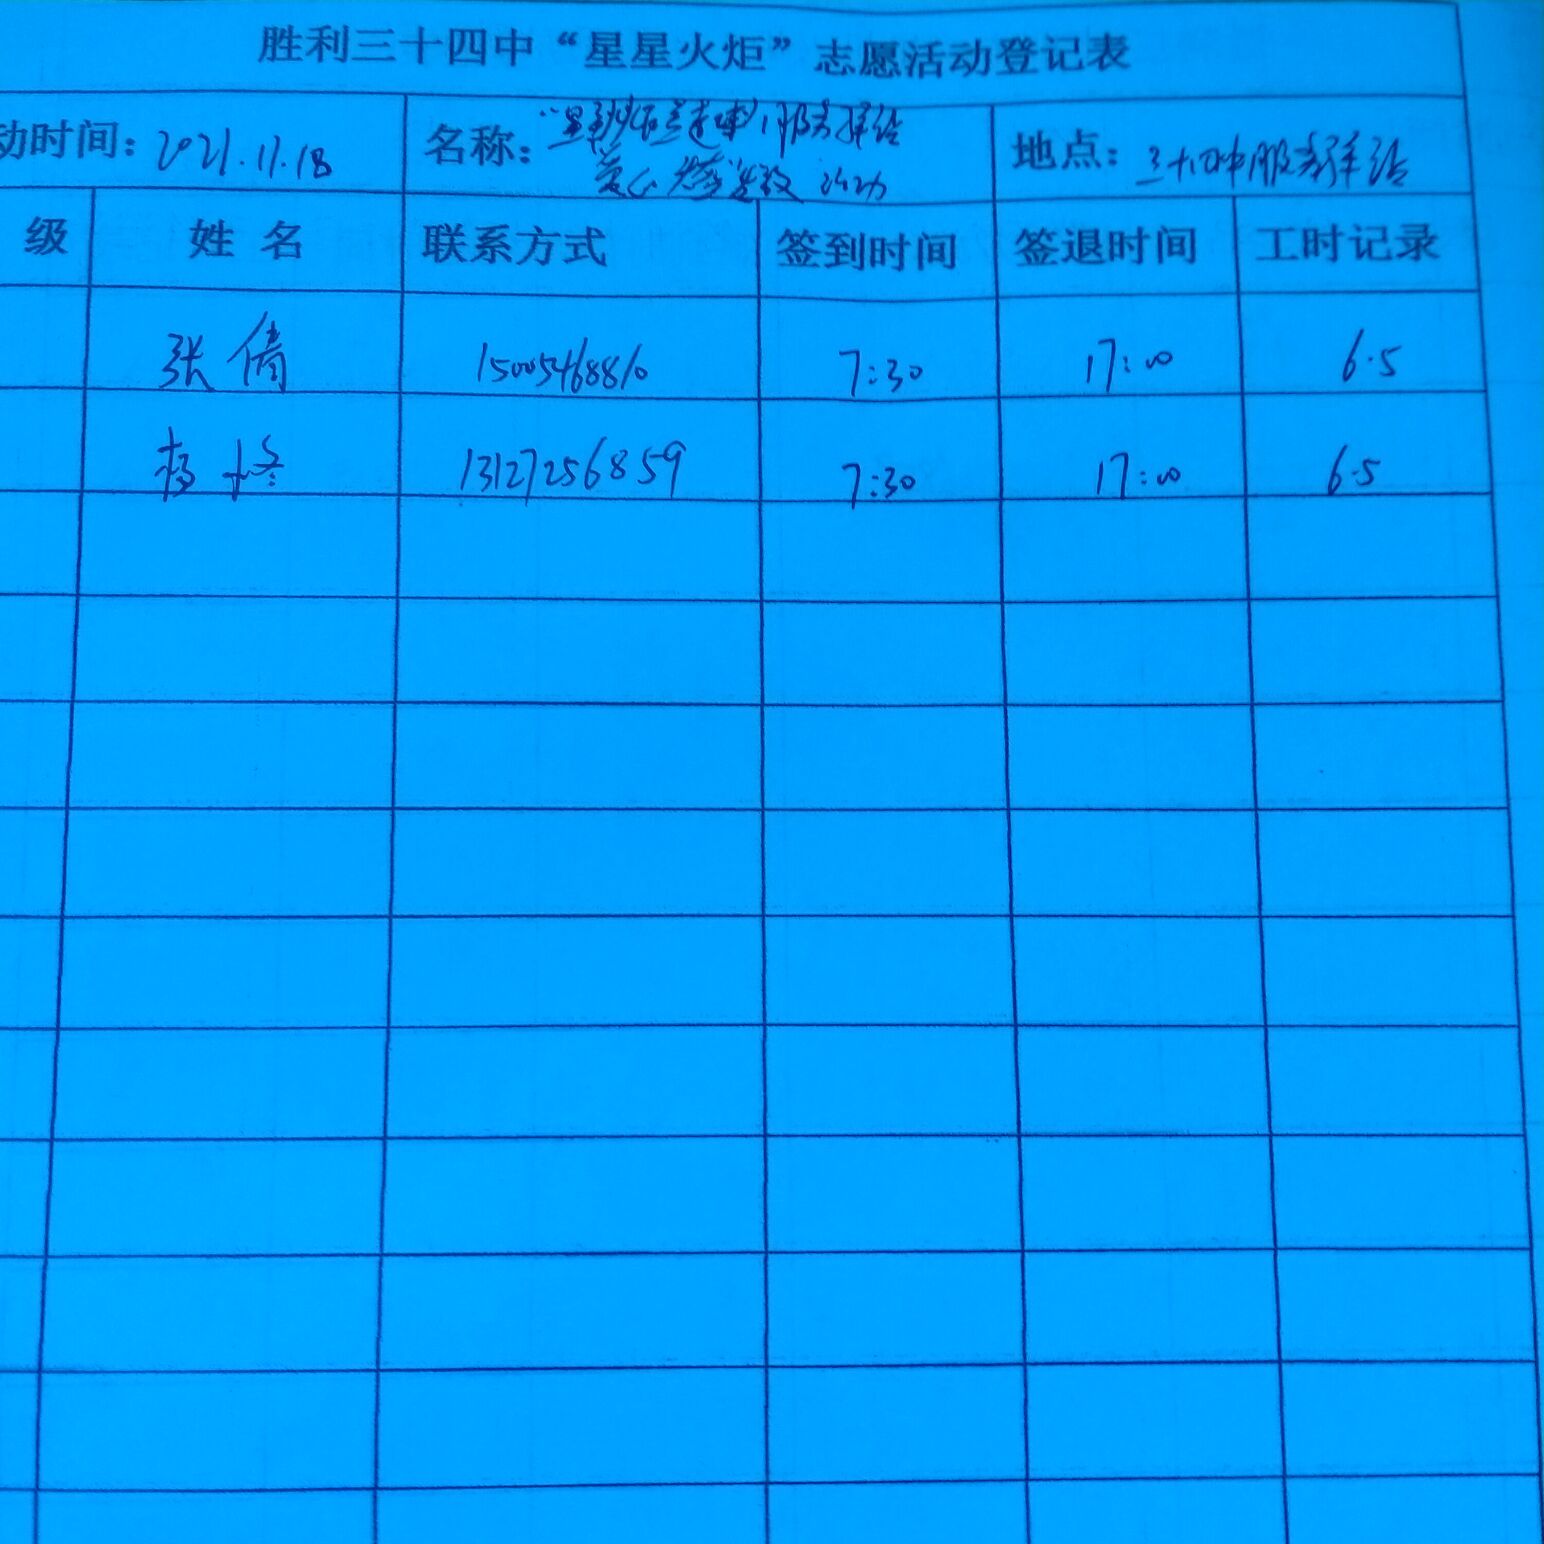 胜利三十四中“星星火炬”志愿活动登记表
动时间：2021.11.18 名称：服务驿站 地点：三十四中服务驿站
爱心 活动
级 姓 名 联系方式 签到时间 签退时间 工时记录
张倩 15005468810 7:30 17:00 6.5
杨 13127256859 7:30 17:00 6.5